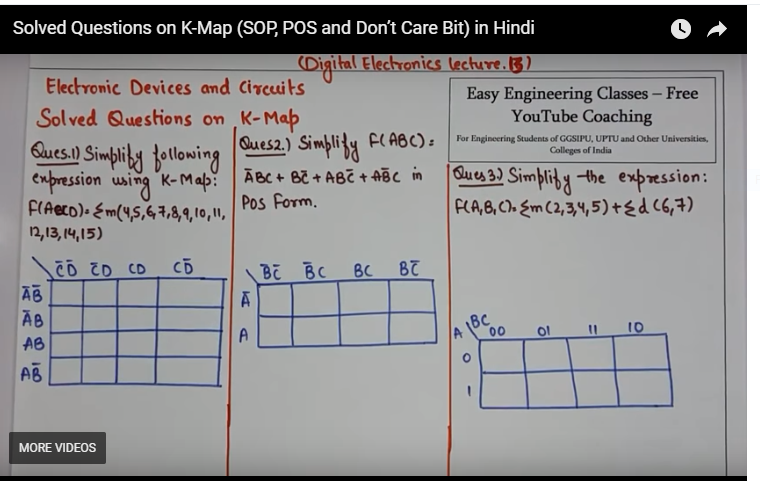 Solved Questions on K-Map (SOP, POS and Don't Care Bit) in Hindi
(Digital Electronics lecture.13)
Electronic Devices and Circuits
Solved Questions on K-Map
Easy Engineering Classes – Free
YouTube Coaching
For Engineering Students of GGSIPU, UPTU and Other Universities,
Colleges of India
Ques.1) Simplify following
expression using K-Map:
F(ABCD)=Σm(4,5,6,7,8,9,10,11,
12,13,14,15)
C̅D̅ C̅D CD CD̅
A̅B̅
A̅B
AB
AB̅
Ques2.) Simplify F(ABC)=
A̅BC + BC̅ + ABC̅ + AB̅C in
POS Form.
B̅C̅ B̅C BC BC̅
A̅
A
Ques3.) Simplify the expression:
F(A,B,C)=Σm(2,3,4,5)+Σd(6,7)
A BC 00 01 11 10
0
1
MORE VIDEOS